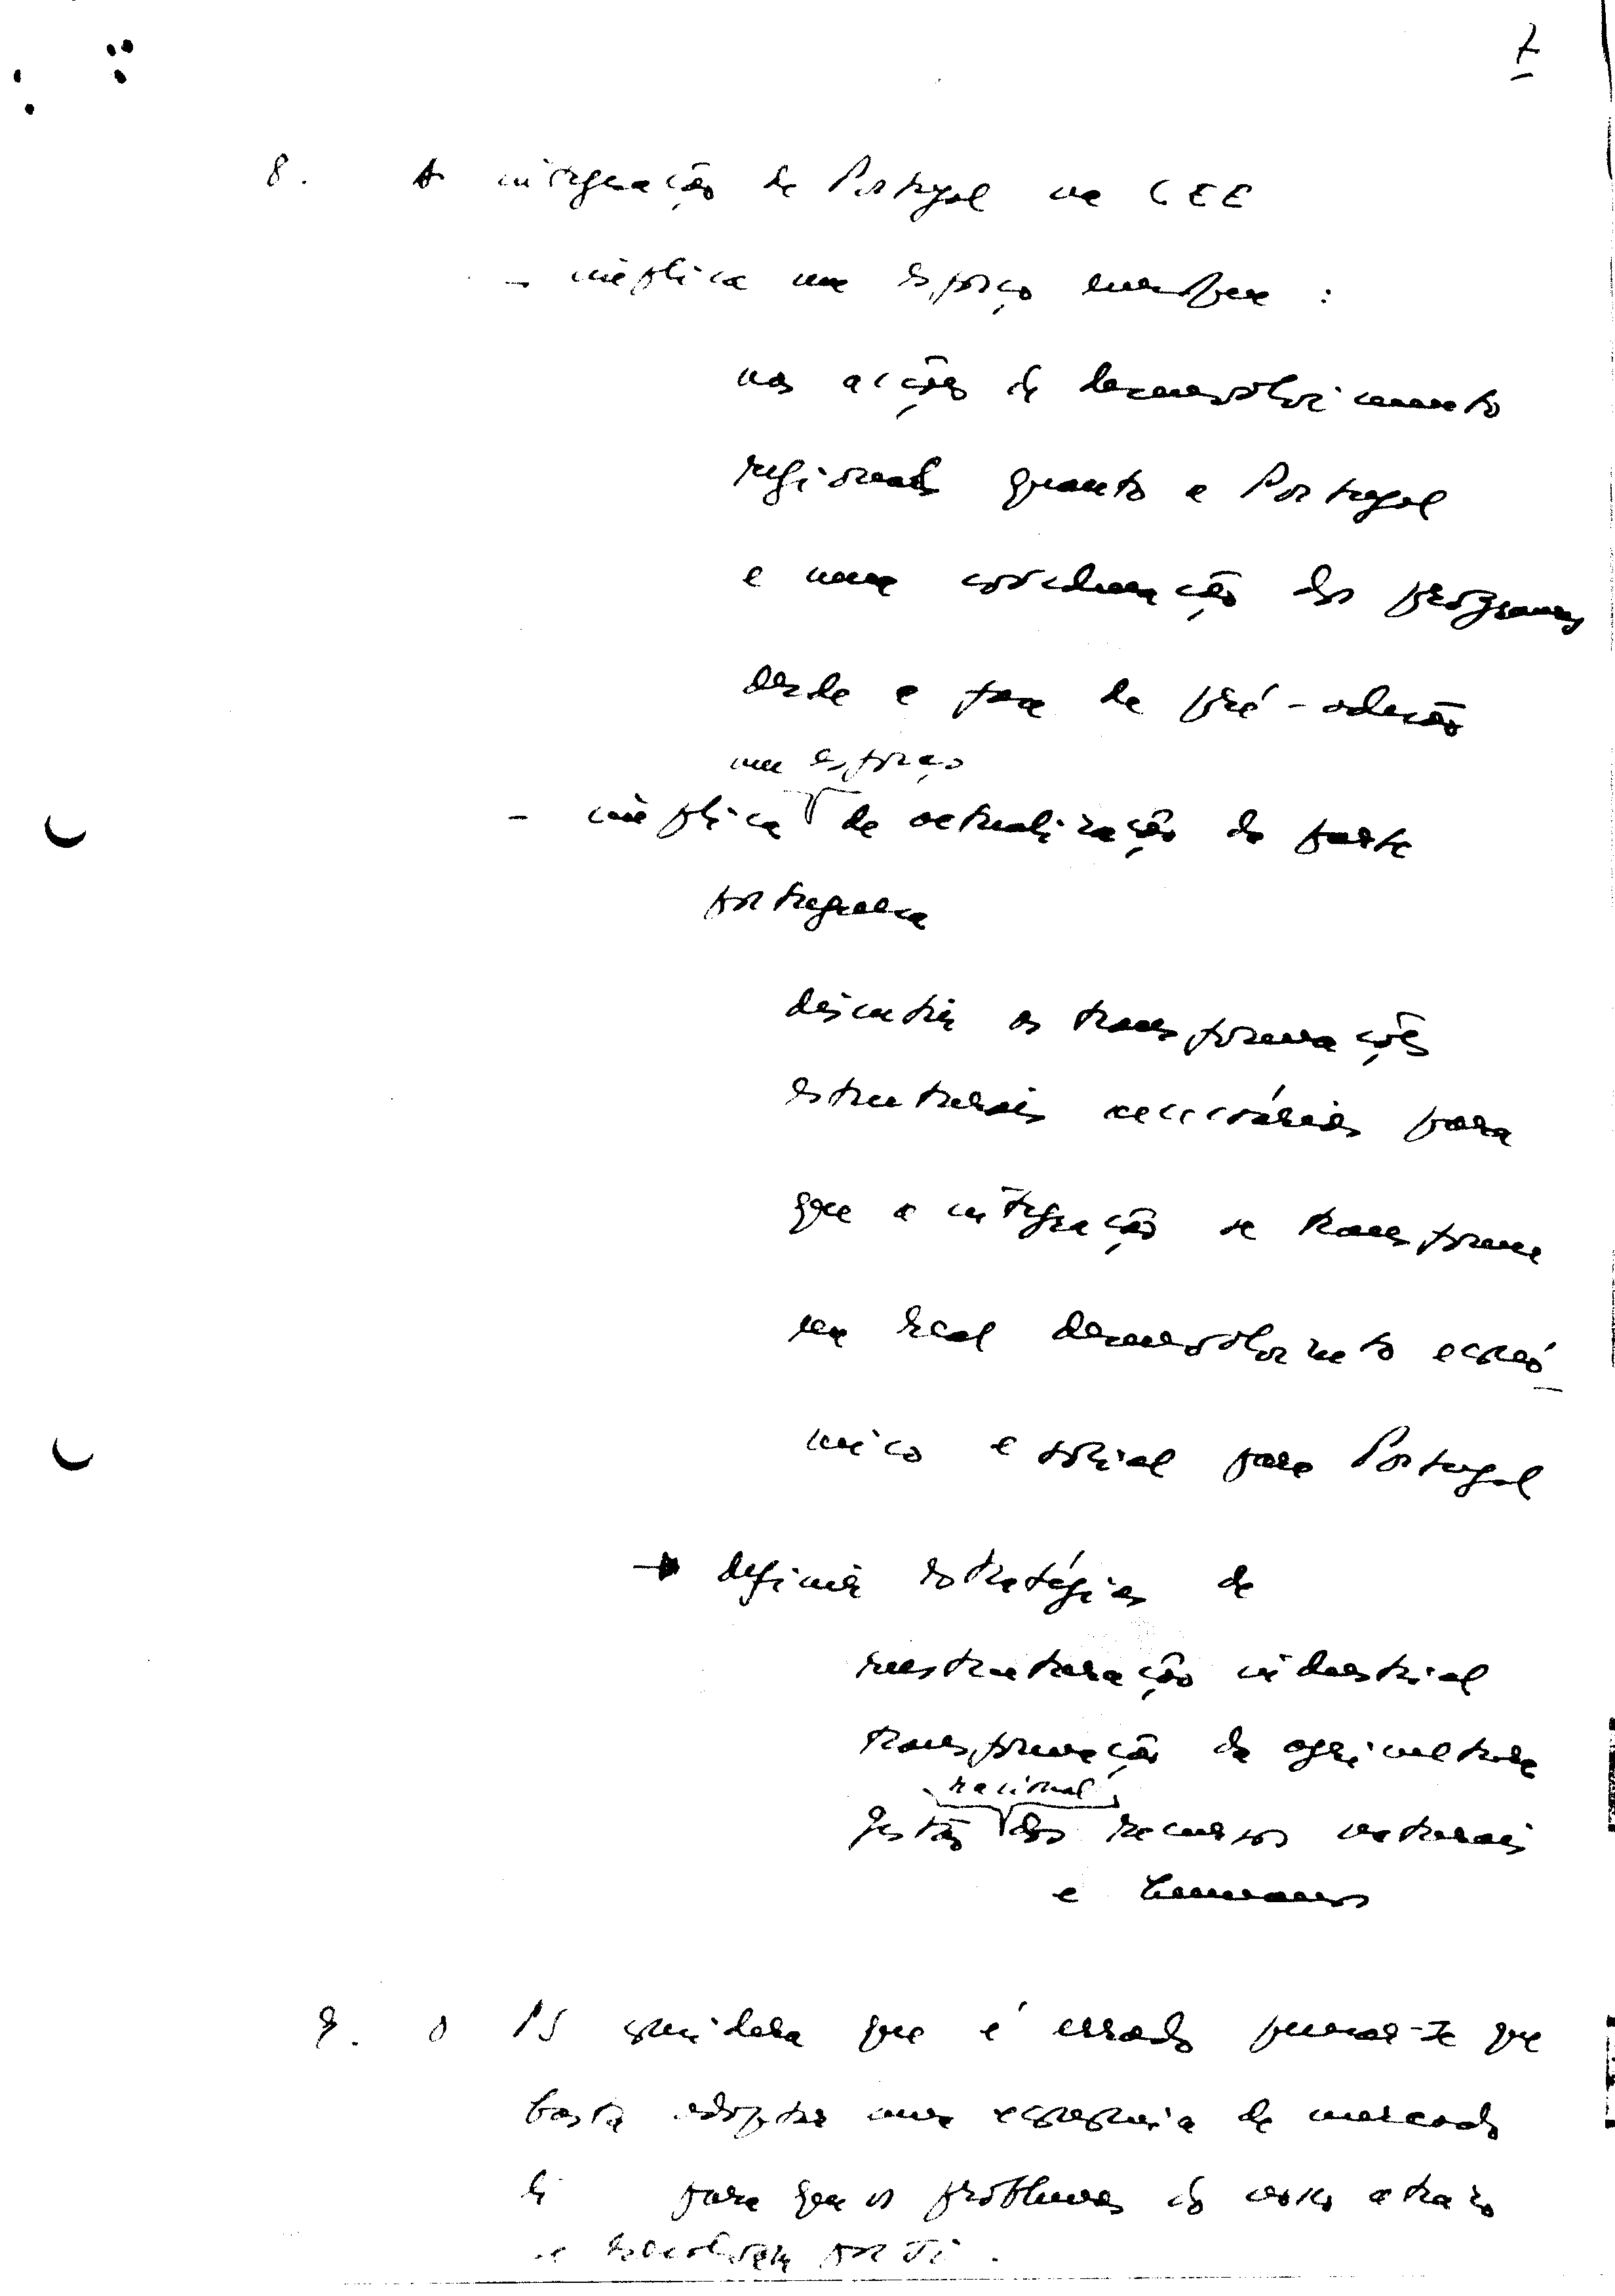 7
8. A integração de Portugal na CEE
- implica um esforço europeu :
nas acções de desenvolvimento
regional quanto a Portugal
e uma coordenação dos programas
desde a fase de pré-adesão
um esforço
- implica de actualização da parte
portuguesa
discutir as transformações
estruturais necessárias para
que a integração se transforme
em real desenvolvimento econó-
mico e social para Portugal
→ definir estratégias de
reestruturação industrial
transformação da agricultura
racional
gestão dos recursos naturais
e humanos
9. O PS considera que é errado pensar-se que
basta adoptar uma economia de mercado
para que os problemas do nosso atraso
se resolvam por si.